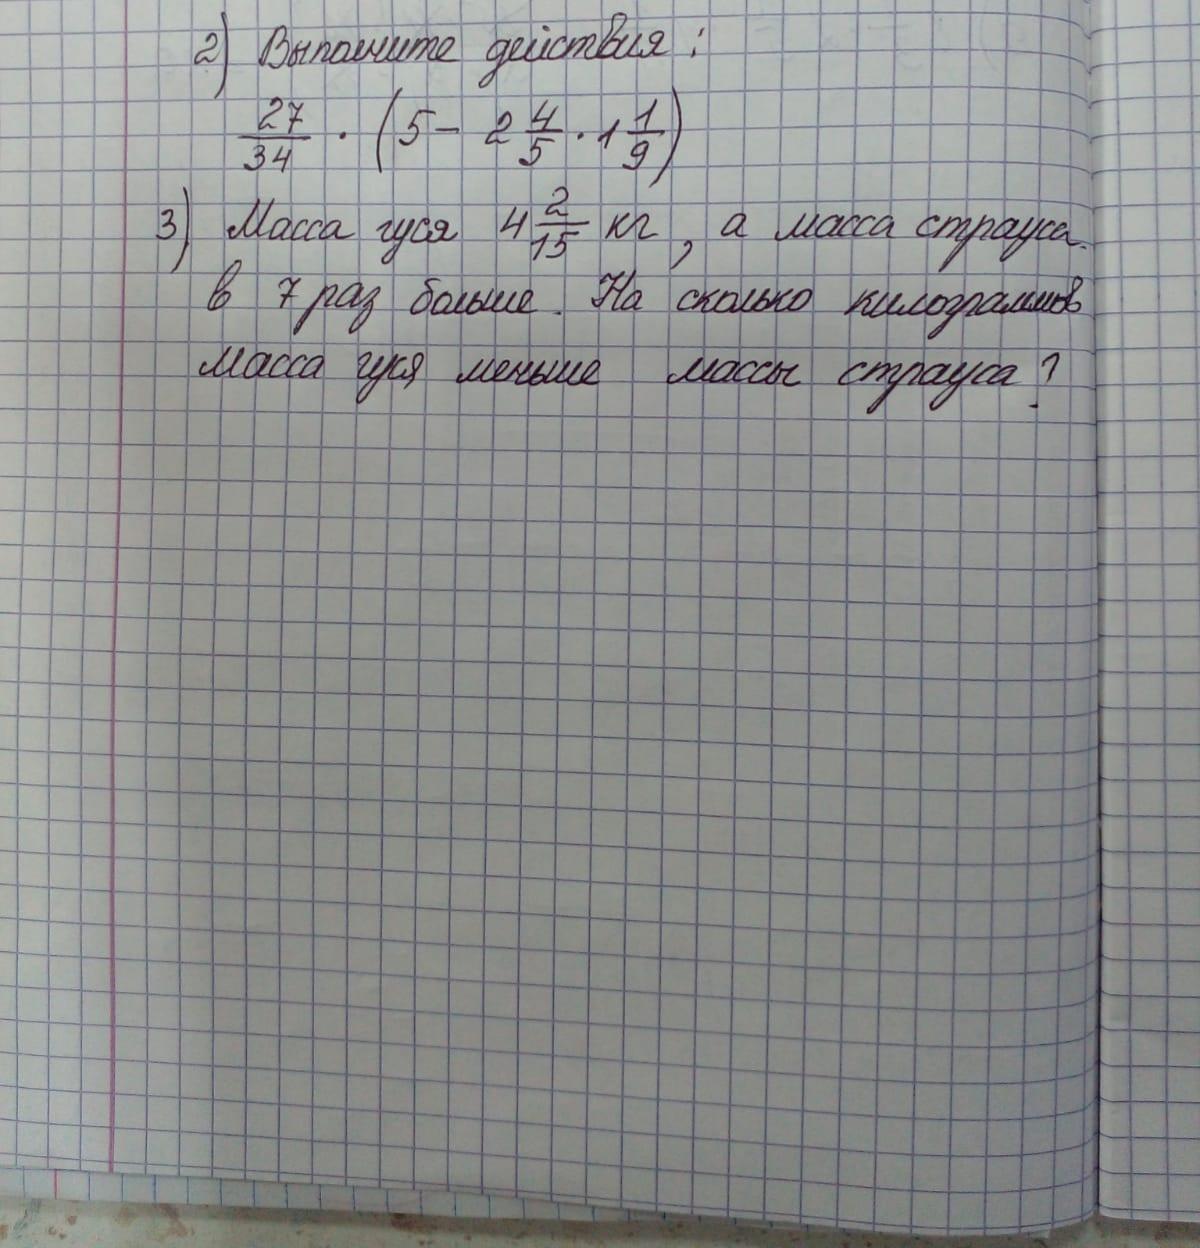 2) Выполните действия:
27/34 · (5 - 2 4/5 · 1 1/9)
3) Масса гуся 4 2/15 кг, а масса страуса
в 7 раз больше. На сколько килограммов
масса гуся меньше массы страуса?